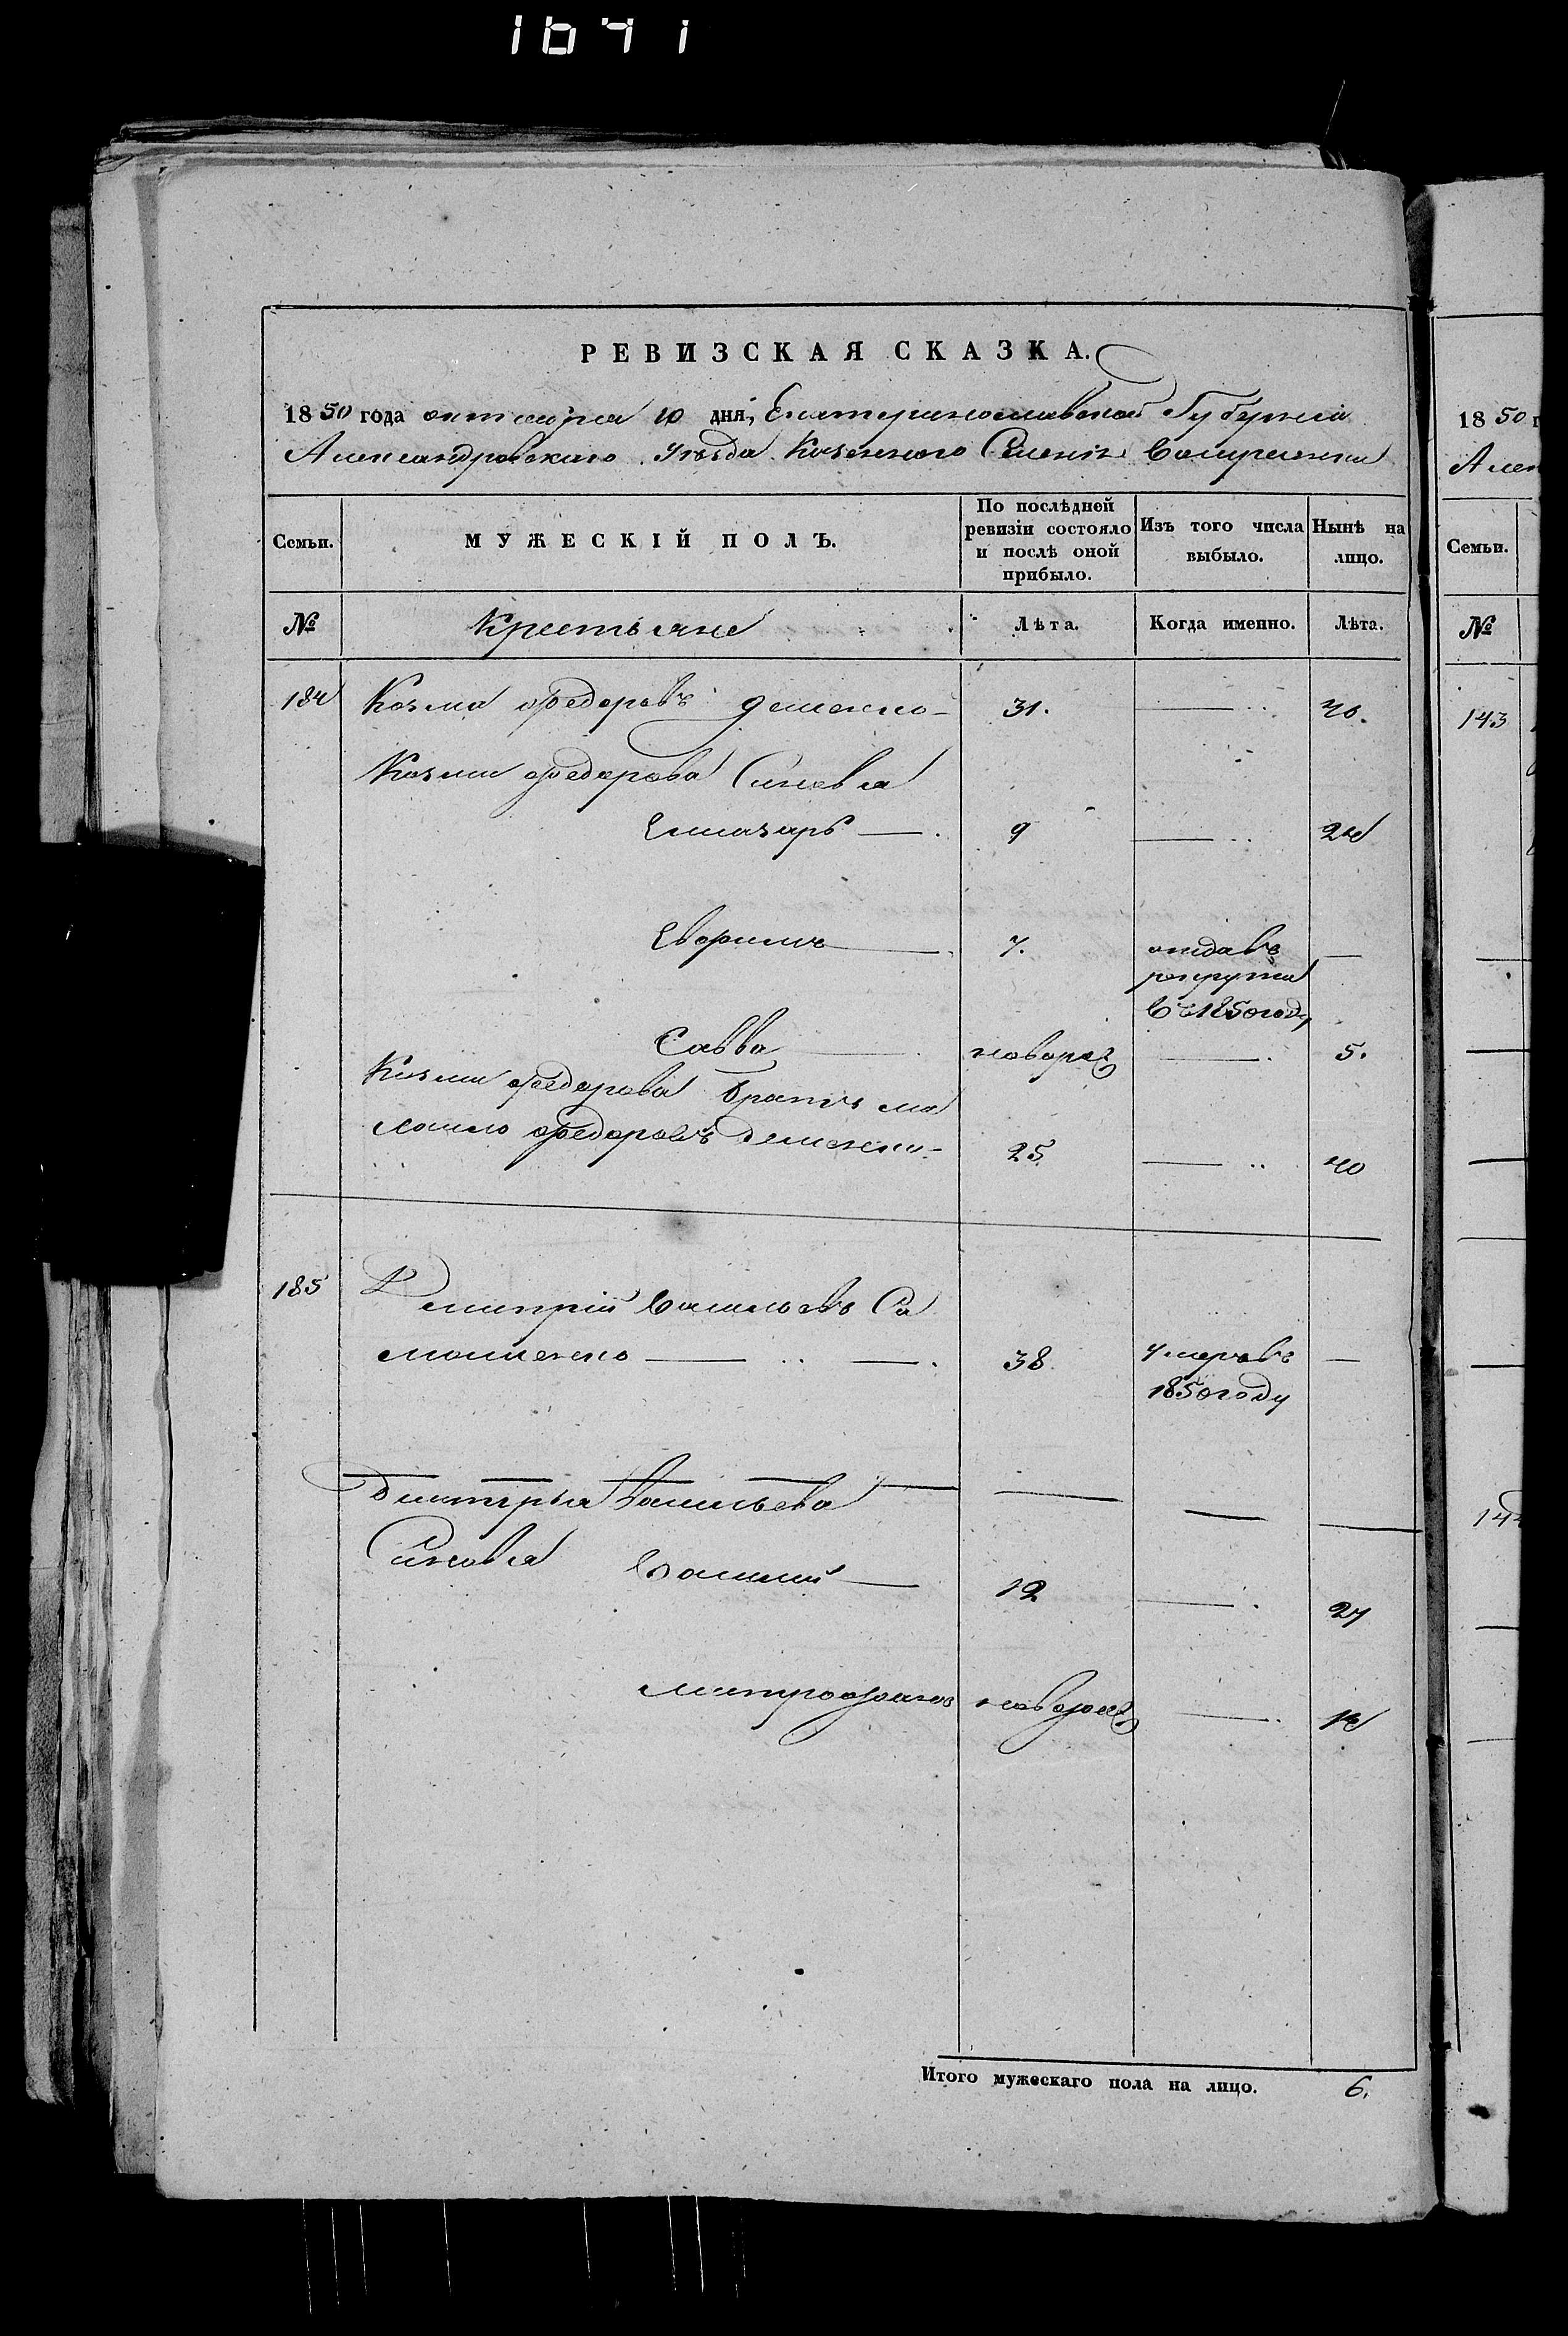 1641
РЕВИЗСКАЯ СКАЗКА.
1850 года октября 10 дня, Екатеринославской Губернии
Александровскаго Уезда Казенного Селения
Семьи.
МУЖЕСКІЙ ПОЛЪ.
По послѣдней ревизіи состояло и послѣ оной прибыло.
Изъ того числа выбыло.
Нынѣ на лицо.
№
Крестьяне
Лѣта.
Когда именно.
Лѣта.
184 Козма Федоровъ Деменко 31.
Козми Федорова Синовя
9 24
7. отдавъ
рекруты
въ 1850 году
Савва новорож 5.
Козми Федорова братъ Ма
Федоровъ Деменко 25 40
185 Дмитрій Василевъ Са
мойленко 38. Умеръ въ
1850 году
Дмитрия Васильева
Синовя Василий 12 27
Митрофанъ новорож 14
Итого мужескаго пола на лицо. 6.
1850 г
Алек
Семьи.
№
143
144